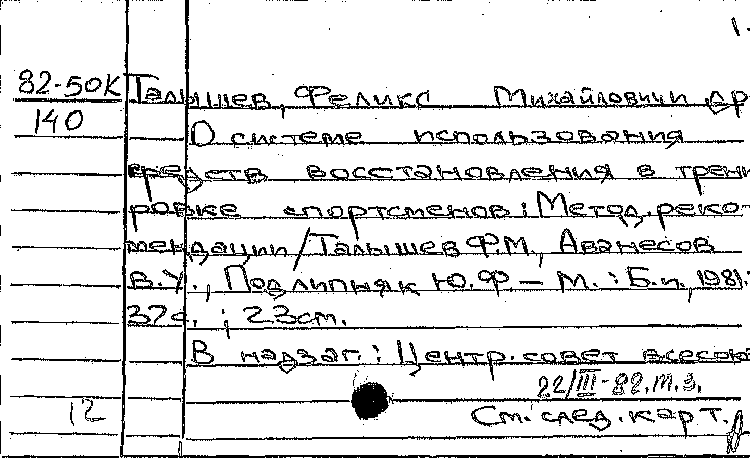 1.
82-50К Талышев, Феликс Михайлович и др
140
О системе использования
средств восстановления в трени
ровке спортсменов: Метод. реко
мендации / Талышев Ф.М., Аванесов
В.У., Подлипняк Ю.Ф. — М. : Б.и., 1981.
37с. ; 23см.
В надзаг.: Центр. совет всесою
22/III-82.т.з.
12 См. след. карт.